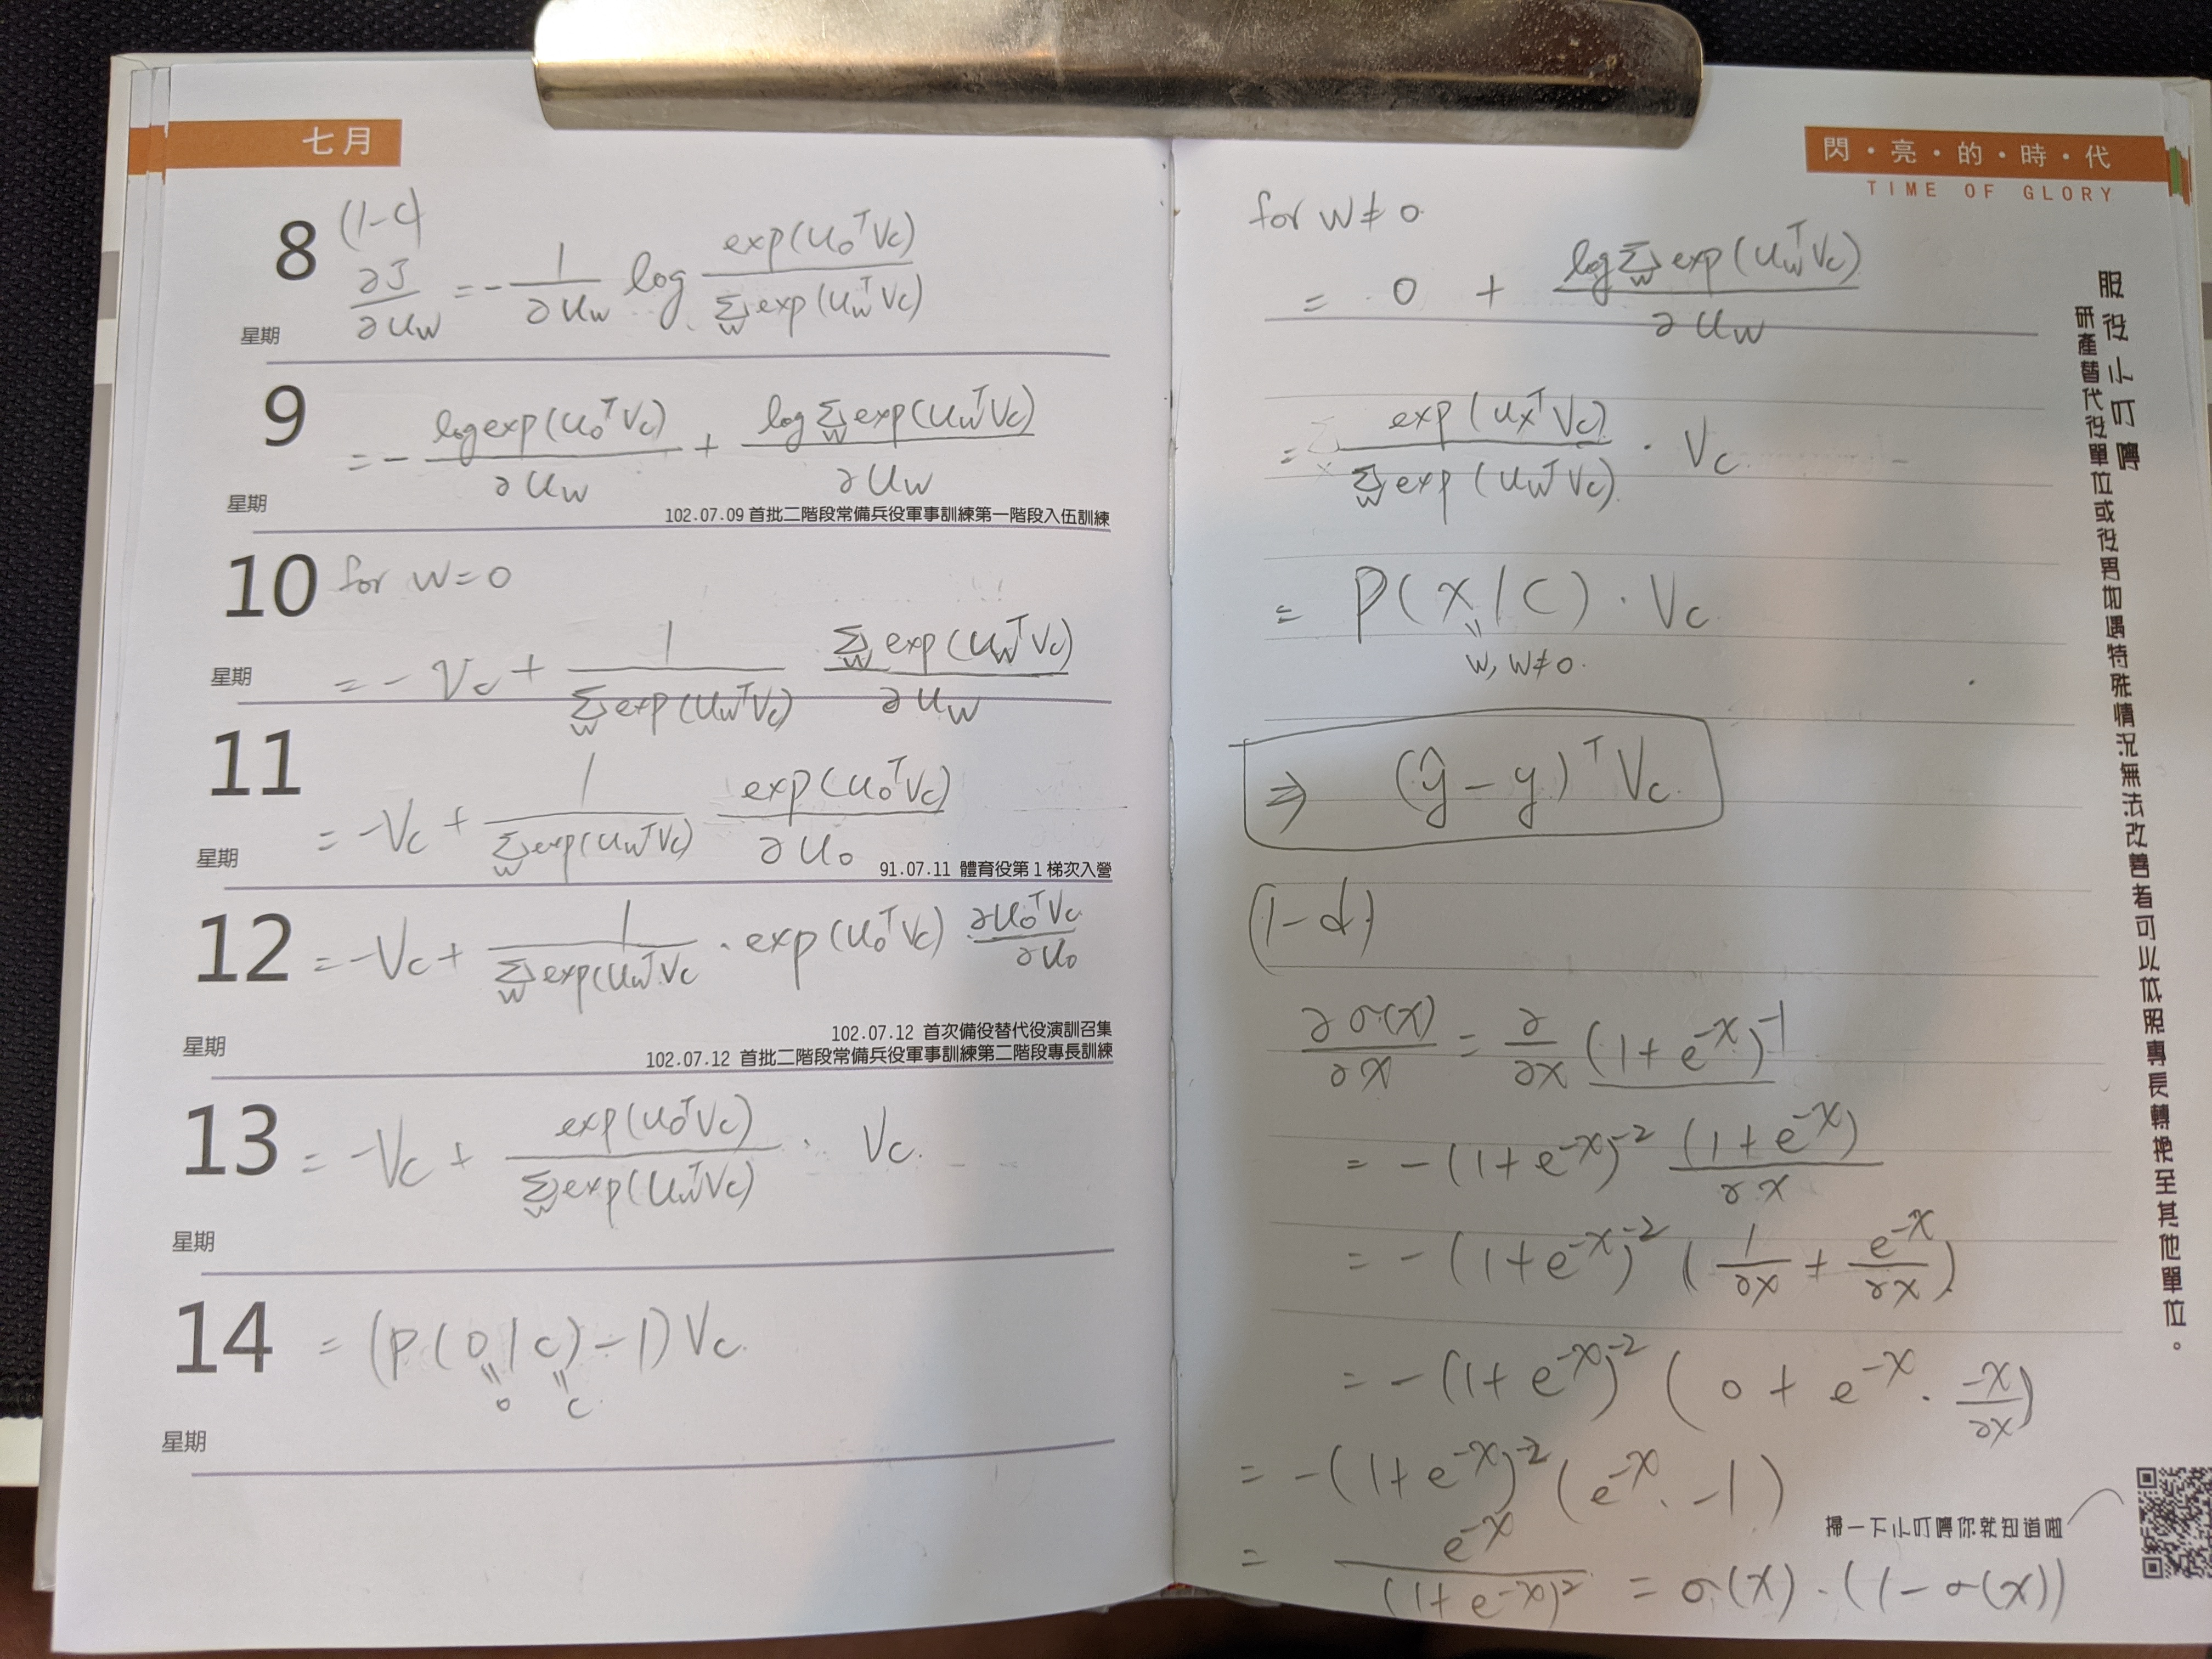 七月
8
(1-c)
∂J/∂u_w = -1/∂u_w log exp(u_o^T V_c)/Σ_w exp(u_w^T V_c)
星期
9
= - log exp(u_o^T V_c)/∂u_w + log Σ_w exp(u_w^T V_c)/∂u_w
星期
102.07.09 首批二階段常備兵役軍事訓練第一階段入伍訓練
10
for w = o
= - V_c + 1/Σ_w exp(u_w^T V_c) Σ_w exp(u_w^T V_c)/∂u_w
星期
11
= -V_c + 1/Σ_w exp(u_w^T V_c) exp(u_o^T V_c)/∂u_o
星期
91.07.11 體育役第1梯次入營
12
= -V_c + 1/Σ_w exp(u_w^T V_c · exp(u_o^T V_c) ∂u_o^T V_c/∂u_o
星期
102.07.12 首次備役替代役演訓召集
102.07.12 首批二階段常備兵役軍事訓練第二階段專長訓練
13
= -V_c + exp(u_o^T V_c)/Σ_w exp(u_w^T V_c) · V_c.
星期
14
= (P(O|C) - 1) V_c.
"o "c
星期
閃·亮·的·時·代
TIME OF GLORY
for w ≠ o
= 0 + log Σ_w exp(u_w^T V_c)/∂u_w
= exp(u_x^T V_c)/Σ_w exp(u_w^T V_c) · V_c
= P(x|C) · V_c
" w, w≠o.
⇒ (ŷ - y)^T V_c
(1-d)
∂σ(x)/∂x = ∂/∂x (1+e^-x)^-1
= -(1+e^-x)^-2 (1+e^-x)/∂x
= -(1+e^-x)^-2 (1/∂x + e^-x/∂x)
= -(1+e^-x)^-2 (0 + e^-x · -x/∂x)
= -(1+e^-x)^-2 (e^-x · -1)
= e^-x/(1+e^-x)^2 = σ(x)·(1-σ(x))
服役小叮嚀
研產替代役單位或役男如遇特殊情況無法改善者可以依照專長轉換至其他單位。
掃一下小叮嚀你就知道啦